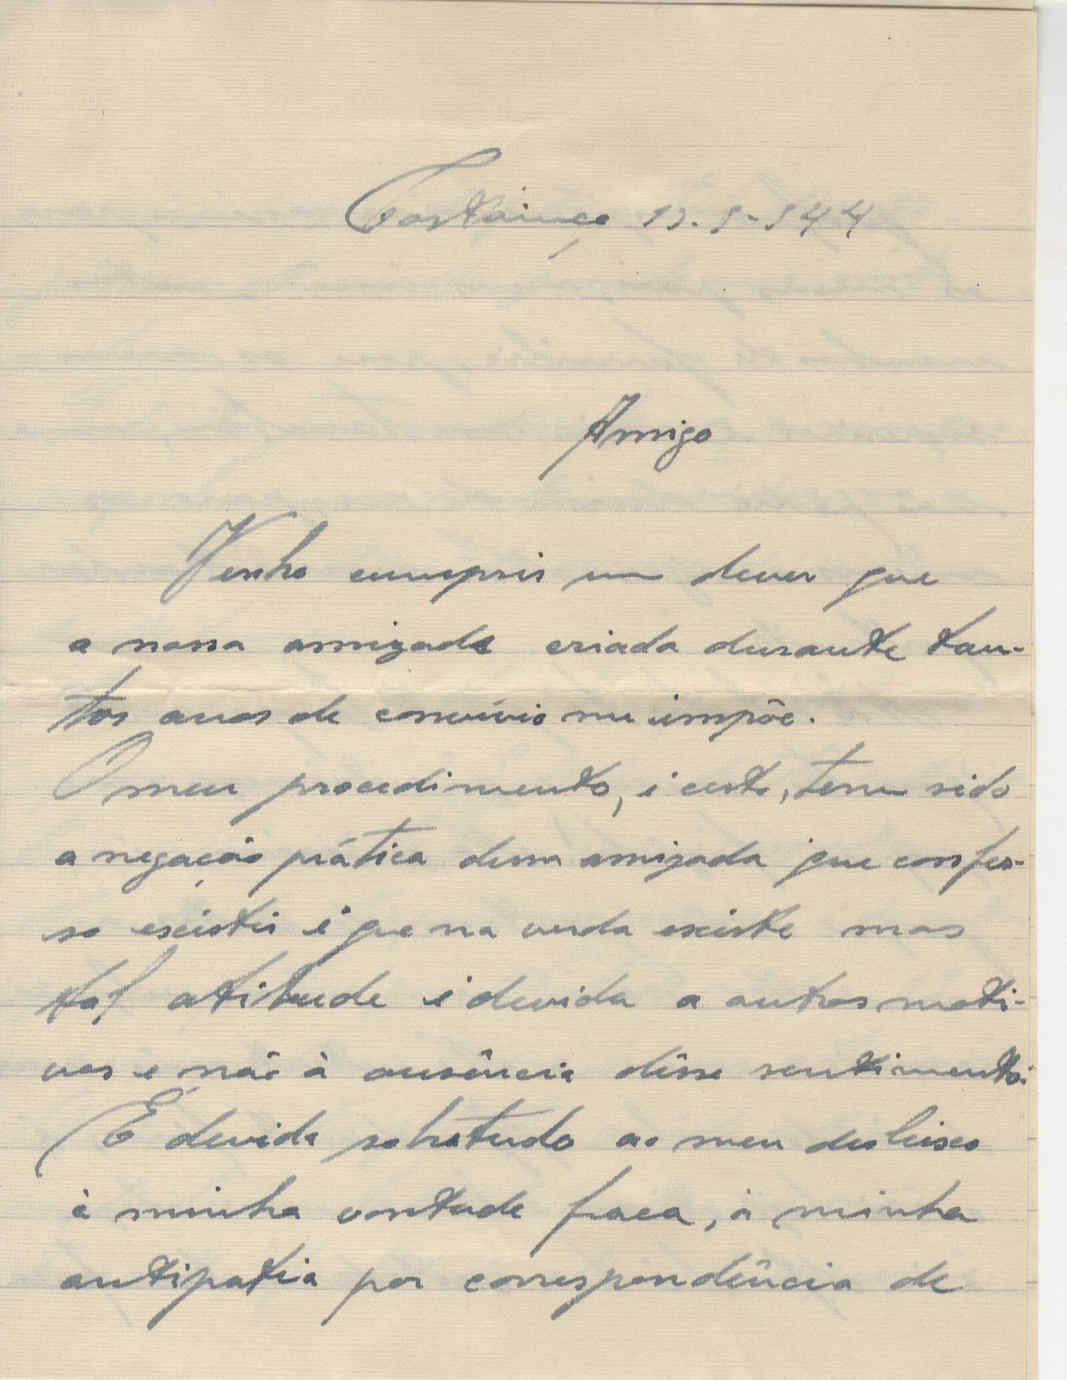 Amigo
Venho cumprir um dever que
a nossa amizade criada durante tan-
tos anos de convívio me impõe.
O meu procedimento, é certo, tem sido
a negação prática dessa amizade que confes-
so existir e que na verda existe mas
tal atitude é devida a outros moti-
vos e não à ausência dêsse sentimento.
É devida sobretudo ao meu desleixo
à minha vontade fraca, à minha
antipatia por correspondência de